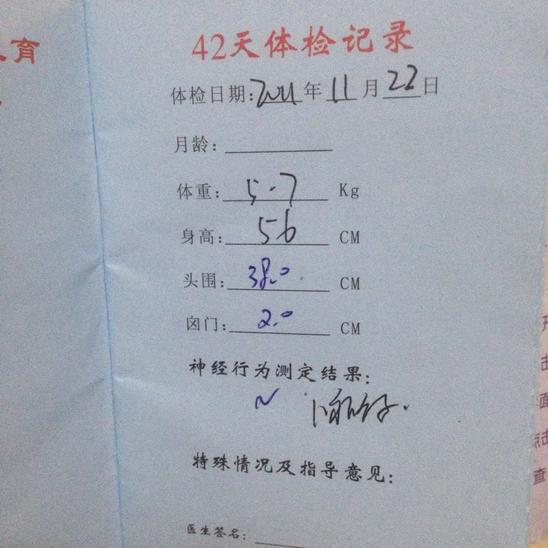 育
42天体检记录
体检日期:2011年11月22日
月龄:
体重:5.7 Kg
身高:56 CM
头围:38.0 CM
囟门:2.0 CM
神经行为测定结果:
特殊情况及指导意见:
医生签名:
击
面
点击
查